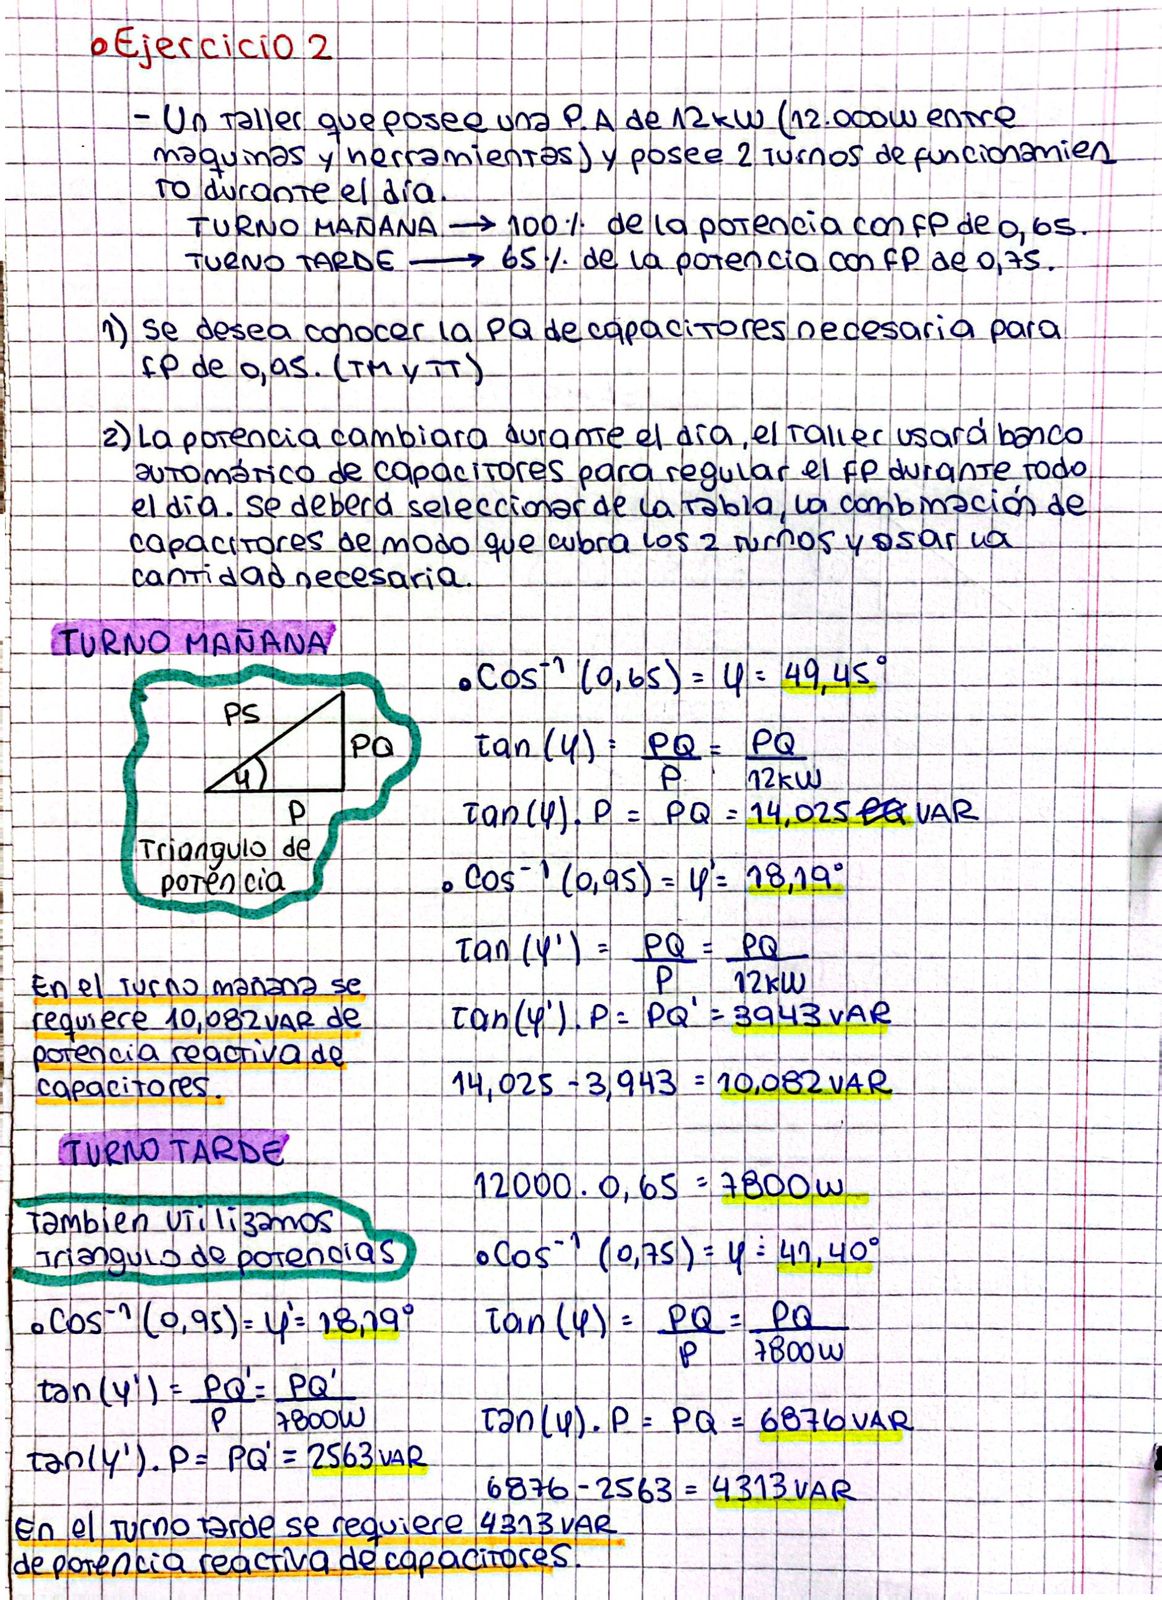 • Ejercicio 2
- Un Taller que posee una P.A de 12kW (12.000W entre
maquinas y herramientas) y posee 2 Turnos de funcionamien
to durante el día.
TURNO MAÑANA → 100% de la potencia con fp de 0,65.
TURNO TARDE → 65% de la potencia con fp de 0,75.
1) Se desea conocer la PQ de capacitores necesaria para
fp de 0,95. (TM y TT)
2) La potencia cambiara durante el día, el taller usará banco
automático de capacitores para regular el fp durante todo
el día. Se deberá seleccionar de la tabla, la combinación de
capacitores de modo que cubra los 2 turnos y usar la
cantidad necesaria.
TURNO MAÑANA
PS
PQ
φ
P
Triangulo de
potencia
• Cos⁻¹ (0,65) = φ = 49,45°
tan (φ) = PQ/P = PQ/12kW
tan(φ). P = PQ = 14,025 VAR
• Cos⁻¹ (0,95) = φ' = 18,19°
tan (φ') = PQ/P = PQ/12kW
tan(φ'). P = PQ' = 3943 VAR
14,025 - 3,943 = 10,082 VAR
En el turno mañana se
requiere 10,082 VAR de
potencia reactiva de
capacitores.
TURNO TARDE
Tambien utilizamos
triangulo de potencias
12000 . 0,65 = 7800W
• Cos⁻¹ (0,75) = φ = 41,40°
tan (φ) = PQ/P = PQ/7800W
tan(φ). P = PQ = 6876 VAR
• Cos⁻¹ (0,95) = φ' = 18,19°
tan (φ') = PQ'/P = PQ'/7800W
tan(φ'). P = PQ' = 2563 VAR
6876 - 2563 = 4313 VAR
En el turno tarde se requiere 4313 VAR
de potencia reactiva de capacitores.